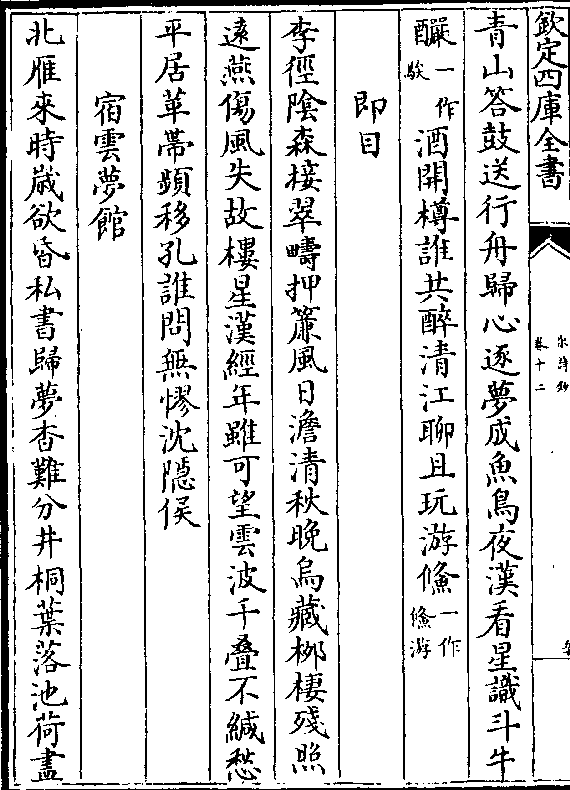 欽定四庫全書
宋詩鈔
卷十二
青山答鼓送行舟歸心逐夢成魚鳥夜漢看星識斗牛
釅一作駿酒開樽誰共醉清江聊且玩游鯈一作鯈游
即目
李徑陰森接翠疇押簾風日澹清秋晚烏藏栁棲殘照
遠燕傷風失故樓星漢經年雖可望雲波千疊不緘愁
平居革帶頻移孔誰問無憀沈隱侯
宿雲夢館
北雁來時歲欲昏私書歸夢杳難分井桐葉落池荷盡